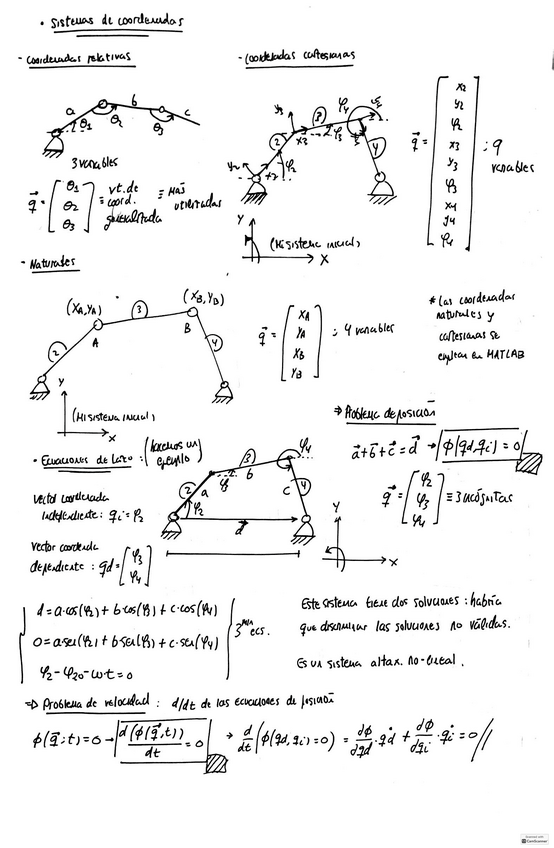 • Sistemas de coordenadas
- Coordenadas relativas
a b c
θ1 θ2 θ3
3 variables
q⃗ = (θ1 θ2 θ3) ≡ vt. de coord. generalizada ≡ Más utilizadas
- Coordenadas cartesianas
2 3 4
Y X
(Mi sistema inicial)
q⃗ = [x2 y2 φ2 x3 y3 φ3 x4 y4 φ4] ; 9 variables
- Naturales
(XA, YA) (XB, YB)
2 3 4
A B
Y X
(Mi sistema inicial)
q⃗ = (XA YA XB YB) ; 4 variables
* Las coordenadas
naturales y
cartesianas se
emplean en MATLAB
• Ecuaciones de Lazo : (hacemos un ejemplo)
2 a φ2 3 φ3 b φ4 c 4
d⃗
Y X
vector coordenada
independiente : qi = φ2
vector coordenada
dependiente : qd = (φ3 φ4)
⇒ Problema de posición
a⃗+b⃗+c⃗ = d⃗ → ϕ(qd,qi) = 0
q⃗ = (φ2 φ3 φ4) ≡ 3 incógnitas
d = a·cos(φ2) + b·cos(φ3) + c·cos(φ4)
0 = a·sen(φ2) + b·sen(φ3) + c·sen(φ4)
φ2 - φ20 - ωt = 0
3 ecs.
Este sistema tiene dos soluciones : habría
que discriminar las soluciones no válidas.
Es un sistema altam. no-lineal.
⇒ Problema de velocidad : d/dt de las ecuaciones de posición
ϕ(q⃗;t) = 0 → d(ϕ(q⃗,t))/dt = 0 → d/dt (ϕ(qd,qi) = 0) = dϕ/dqd · q̇d + dϕ/dqi · q̇i = 0 //
Scanned with
CamScanner